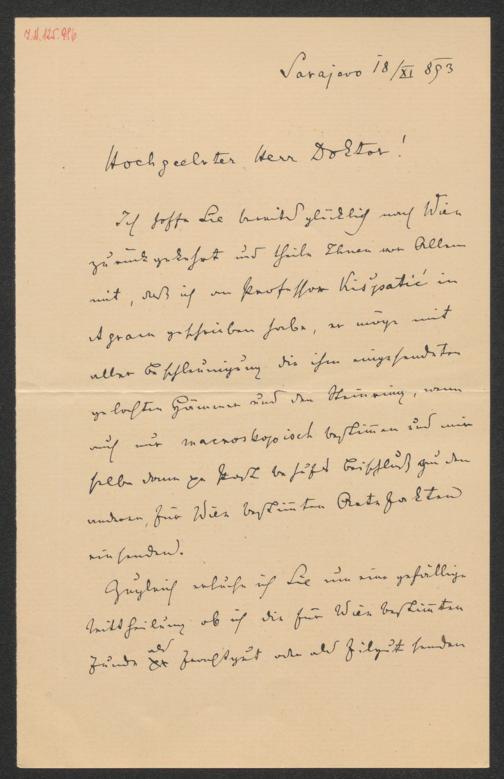 J.N. 125.986
Sarajevo 18/XI 893
Hochgeehrter Herr Doktor!
Ich hoffe Sie bereits glücklich nach Wien
zurückgekehrt und theile Ihnen vor Allem
mit, daß ich an Professor Kišpatić in
Agram geschrieben habe, er möge mit
aller Beschleunigung die ihm eingesendeten
gelochten Hämmer und den Steinring, wenn
auch nur macroskopisch bestimmen und mir
selbe dann per Post behufs Beischluß zu den
anderen, für Wien bestimmten Artefakten
einsenden.
Zugleich ersuche ich Sie um eine gefällige
Mittheilung ob ich die für Wien bestimmten
Funde als Frachtgut oder als Eilgut senden